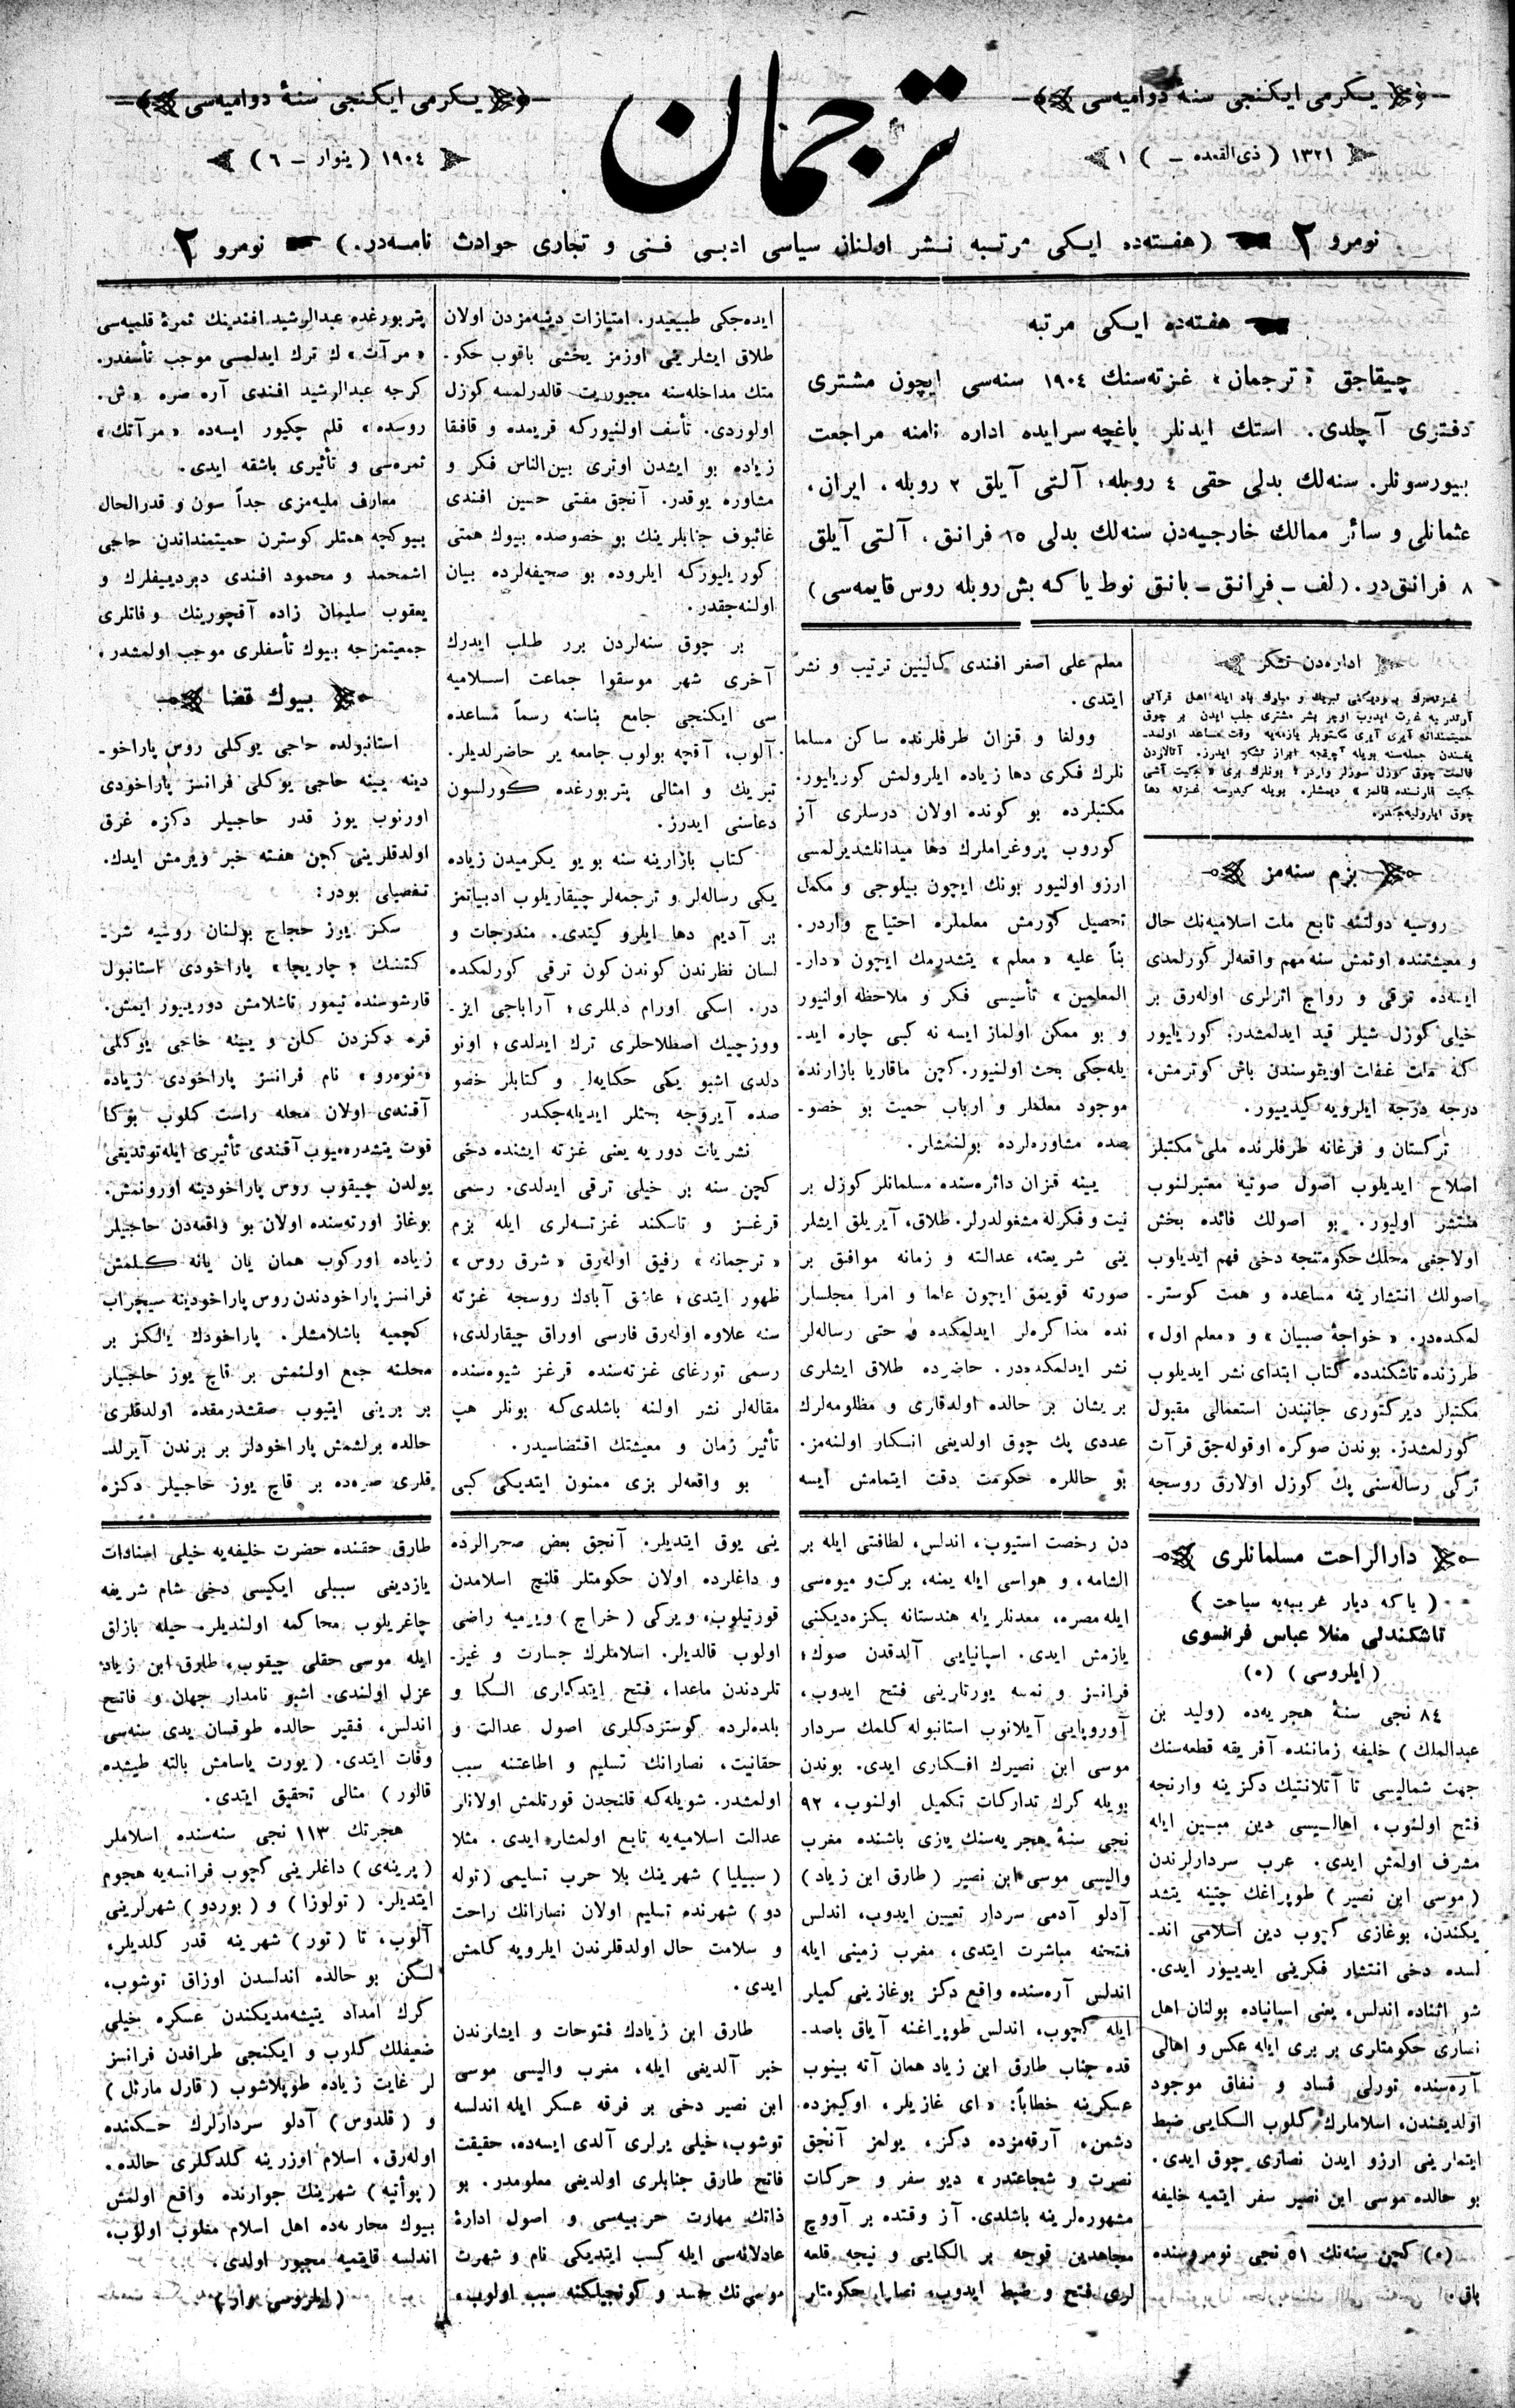 يكرمی ايكنجی سنۀ دواميه‌سی
ترجمان
يكرمی ايكنجی سنۀ دواميه‌سی
١٣٢١ ( ذی القعده – ) ١
١٩٠٤ ( ينوار – ٦ )
نومرو ٢ (هفته‌ده ايكی مرتبه نشر اولنان سياسی ادبی فنی و تجاری حوادث نامه‌در.) نومرو ٢
هفته‌ده ايكی مرتبه
چيقاجق « ترجمان » غزته‌سنك ١٩٠٤ سنه‌سی ايچون مشتری
دفتری آچلدی. استك ايدنلر باغچه سرايده اداره نامنه مراجعت
بيورسونلر. سنه‌لك بدلی حقی ٤ روبله؛ آلتی آيلق ٢ روبله، ايران،
عثمانلی و سائر ممالك خارجيه‌دن سنه‌لك بدلی ١٥ فرانق، آلتی آيلق
٨ فرانق‌در. (لف – فرانق – بانق نوط ياكه بش روبله روس قايمه‌سی)
اداره‌دن تشكر
چوق ايلروليه‌جكدر.
بزم سنه‌مز
روسيه دولتنه تابع ملت اسلاميه‌نك حال
و معيشتنده اوتمش سنه مهم واقعه‌لر كورلمدی
ايسه‌ده ترقی و رواج اثرلری اوله‌رق بر
خيلی كوزل شيلر قيد ايدلمشدر؛ كوريليور
كه ملت غفلت اويقوسندن باش كوترمش،
درجه درجه ايلرويه كيدييور.
تركستان و فرغانه طرفلرنده ملی مكتبلر
اصلاح ايديلوب اصول صوتيه معتبرلنوب
منتشر اوليور. بو اصولك فائده بخش
اولاجغی محلك حكومتنجه دخی فهم ايديلوب
اصولك انتشارينه مساعده و همت كوستر-
لمكده‌در. « خواجۀ صبيان » و « معلم اول »
طرزنده تاشكندده كتاب ابتدای نشر ايديلوب
مكتبلر ديركتوری جانبندن استعمالی مقبول
كورلمشدر. بوندن صوكره اوقوله‌جق قرآت
تركی رساله‌سنی پك كوزل اولارق روسجه
معلم علی اصغر افندی كالينين ترتيب و نشر
ايتدی.
وولغا و قزان طرفلرنده ساكن مسلما
نلرك فكری دها زياده ايلرولمش كوريليور.
مكتبلرده بو كونده اولان درسلری آز
كوروب پروغراملرك دها ميدانلشديرلمسی
ارزو اولنيور بونك ايچون بيلوجی و مكمل
تحصيل كورمش معلملره احتياج واردر.
بناً عليه « معلم » يتشدرمك ايچون « دار-
المعلمين » تأسيسی فكر و ملاحظه اولنيور
و بو ممكن اولماز ايسه نه كبی چاره ايد-
يله‌جكی بحث اولنيور. كچن ماقاريا بازارنده
موجود معلملر و ارباب حميت بو خصو-
صده مشاوره‌لرده بولنمشلر.
يينه قزان دائره‌سنده مسلمانلر كوزل بر
نيت و فكرله مشغولدرلر. طلاق، آيريلق ايشلر
ينی شريعته، عدالته و زمانه موافق بر
صورته قويمق ايچون علما و امرا مجلسلر
نده مذاكره‌لر ايدلمكده و حتی رساله‌لر
نشر ايدلمكده‌در. حاضرده طلاق ايشلری
بريشان بر حالده اولدقلری و مظلومه‌لرك
عددی پك چوق اولديغی انكار اولنه‌مز.
بو حاللره حكومت دقت ايتمامش ايسه
ايده‌جكی طبيعيدر. امتيازات دينيه‌مزدن اولان
طلاق ايشلرينی اوزمز يخشی باقوب حكو-
متك مداخله‌سنه مجبوريت قالدرلمسه كوزل
اولوردی. تأسف اولنيوركه قريمده و قافقا
زياده بو ايشدن اوتری بين‌الناس فكر و
مشاوره يوقدر. آنجق مفتی حسين افندی
غائبوف جنابلرينك بو خصوصده بيوك همتی
كوريليوركه ايلروده بو صحيفه‌لرده بيان
اولنه‌جقدر.
بر چوق سنه‌لردن برر طلب ايدرك
آخری شهر موسقوا جماعت اسلاميه
سی ايكنجی جامع بناسنه رسماً مساعده
آلوب، آقچه بولوب جامعه ير حاضرلديلر.
تبريك و امثالی پتربورغده كورلسون
دعاسنی ايدرز.
كتاب بازارينه سنه بو يو يكرميدن زياده
يكی رساله‌لر و ترجمه‌لر چيقاريلوب ادبياتمز
بر آديم دها ايلرو كيتدی. مندرجات و
لسان نظرندن كوندن كون ترقی كورلمكده
در. اسكی اورام ديللری؛ آراباجی ايز-
ووزچيك اصطلاحلری ترك ايدلدی؛ اونو
دلدی اشبو يكی حكايه‌لر و كتابلر خصو
صده آيروجه بحثلر ايديله‌جكدر
نشريات دوريه يعنی غزته ايشنده دخی
كچن سنه بر خيلی ترقی ايدلدی. رسمی
قرغز و تاسكند غزتسه‌لری ايله بزم
« ترجمانه » رفيق اوله‌رق « شرق روس »
ظهور ايتدی؛ عاشق آبادك روسجه غزته
سنه علاوه اوله‌رق فارسی اوراق چيقارلدی؛
رسمی تورغای غزته‌سنده قرغز شيوه‌سنده
مقاله‌لر نشر اولنه باشلدی‌كه بونلر هپ
تأثير زمان و معيشتك اقتضاسيدر.
بو واقعه‌لر بزی ممنون ايتديكی كبی
پتربورغده عبدالرشيد افندينك ثمرۀ قلميه‌سی
« مرآت » ك ترك ايدلمسی موجب تأسفدر.
كرجه عبدالرشيد افندی آره صره « ش.
روسده » قلم چكيور ايسه‌ده « مرآتك »
ثمره‌سی و تأثيری باشقه ايدی.
معارف مليه‌مزی جداً سون و قدرالحال
بيوكچه همتلر كوسترن حميتمنداندن حاجی
اشمحمد و محمود افندی دبرديیفلرك و
يعقوب سليمان زاده آقچورينك وفاتلری
جمعيتمزجه بيوك تأسفلری موجب اولمشدر.
بيوك قضا
استانبولده حاجی يوكلی روس پاراخو-
دينه يينه حاجی يوكلی فرانسز پاراخودی
اورنوب يوز قدر حاجيلر دكزه غرق
اولدقلرينی كچن هفته خبر ويرمش ايدك.
تفصيلی بودر:
سكز يوز حجاج بولنان روسيه شر-
كتنك « چاريچا » پاراخودی استانبول
قارشوسنده تيمور تاشلامش دورييور ايمش.
قره دكزدن كلن و يينه حاجی يوكلی
« نوه‌رو » نام فرانسز پاراخودی زياده
آقندی اولان محله راست كلوب بوكا
قوت يتشدره‌ميوب آقندی تأثيری ايله توتديغی
يولدن چيقوب روس پاراخودينه اورونمش.
بوغاز اورته‌سنده اولان بو واقعه‌دن حاجيلر
زياده اوركوب همان يان يانه كلمش
فرانسز پاراخودندن روس پاراخودينه سيچراب
كچميه باشلامشلر. پاراخودك يالكز بر
محلنه جمع اولنمش بر قاچ يوز حاجيلر
بر برينی ايتيوب صقشدرمقده اولدقلری
حالده برلشمش پاراخودلر بر برندن آيرلد-
قلری صره‌ده بر قاچ يوز حاجيلر دكزه
دارالراحت مسلمانلری
( ياكه ديار غريبه‌يه سياحت )
تاشكندلی منلا عباس فرانسوی
( ايلروسی ) (٠)
٨٤ نجی سنۀ هجريه‌ده (وليد بن
عبدالملك) خليفه زماننده آفريقه قطعه‌سنك
جهت شماليسی تا آتلانتيك دكزينه وارنجه
فتح اولنوب، اهاليسی دين مبين ايله
مشرف اولمش ايدی. عرب سردارلرندن
(موسی ابن نصير) طوپراغك چتينه يتشد
يكندن، بوغازی كچوب دين اسلامی اند-
لسده دخی انتشار فكرينی ايدييور ايدی.
شو اثناده اندلس، يعنی اسپانياده بولنان اهل
نساری حكومتلری بر بری ايله عكس و اهالی
آره‌سنده تورلی فساد و نفاق موجود
اولديغندن، اسلاملرك كلوب الكايی ضبط
ايتملرينی ارزو ايدن نصاری چوق ايدی.
بو حالده موسی ابن نصير سفر ايتميه خليفه
(٠) كچن سنه‌نك ٥١ نجی نومروسنده
باق.
دن رخصت استيوب، اندلس، لطافتی ايله بر
الشامه، و هواسی ايله يمنه، بركت و ميوه‌سی
ايله مصره، معدنلر ايله هندستانه بكزه‌ديكنی
يازمش ايدی. اسپانيايی آلدقدن صوك؛
فرانسز و نمسه يورتلرينی فتح ايدوب،
آوروپايی آيلانوب استانبوله كلمك سردار
موسی ابن نصيرك افكاری ايدی. بوندن
بويله كرك تداركات تكميل اولنوب، ٩٢
نجی سنۀ هجريه‌سنك يازی باشنده مغرب
واليسی موسی ابن نصير (طارق ابن زياد)
آدلو آدمی سردار تعيين ايدوب، اندلس
فتحنه مباشرت ايتدی، مغرب زمينی ايله
اندلس آره‌سنده واقع دكز بوغازينی كميلر
ايله كچوب، اندلس طوپراغنه آياق باصد-
قده جناب طارق ابن زياد همان آته بينوب
عسكرينه خطاباً: « ای غازيلر، اوكيمزده
دشمن، آرقه‌مزده دكز، يولمز آنجق
نصرت و شجاعتدر » ديو سفر و حركات
مشهوره‌لرينه باشلدی. آز وقتده بر آووچ
مجاهدين قوجه بر الكايی و نيجه قلعه
لری فتح و ضبط ايدوب، نصارا حكومتلر
ينی يوق ايتديلر. آنجق بعض صحرالرده
و داغلرده اولان حكومتلر قلنچ اسلامدن
قورتيلوب، ويركی (خراج) ويرميه راضی
اولوب قالديلر. اسلاملرك جسارت و غير-
تلردندن ماعدا، فتح ايتدكلری الكا و
بلده‌لرده كوستردكلری اصول عدالت و
حقانيت، نصارانك تسليم و اطاعتنه سبب
اولمشدر. شويله‌كه قلنجدن قورتلمش اولانلر
عدالت اسلاميه‌يه تابع اولمشلر ايدی. مثلا
(سبيليا) شهرينك بلا حرب تسليمی (توله
دو) شهرنده تسليم اولان نصارانك راحت
و سلامت حال اولدقلرندن ايلرويه كلمش
ايدی.
طارق ابن زيادك فتوحات و ايشلرندن
خبر آلديغی ايله، مغرب واليسی موسی
ابن نصير دخی بر فرقه عسكر ايله اندلسه
توشوب، خيلی يرلری آلدی ايسه‌ده، حقيقت
فاتح طارق جنابلری اولديغی معلومدر. بو
ذاتك مهارت حربيه‌سی و اصول ادارۀ
عادلانه‌سی ايله كسب ايتديكی نام و شهرت
موسی‌نك حسد و كونجيلكنه سبب اولوب،
طارق حقنده حضرت خليفه‌يه خيلی اسنادات
يازديغی سببلی ايكيسی دخی شام شريفه
چاغريلوب محاكمه اولنديلر. حيله بازلق
ايله موسی حقلی چيقوب، طارق ابن زياد
عزل اولندی. اشبو نامدار جهان و فاتح
اندلس، فقير حالده طوقسان يدی سنه‌سی
وفات ايتدی. (يورت ياسامش بالته طيشده
قالور) مثالی تحقيق ايتدی.
هجرتك ١١٣ نجی سنه‌سنده اسلاملر
(پرينه‌ی) داغلرينی كچوب فرانسه‌يه هجوم
ايتديلر. (تولوزا) و (بوردو) شهرلرينی
آلوب، تا (تور) شهرينه قدر كلديلر،
لكن بو حالده اندلسدن اوزاق توشوب،
كرك امداد يتيشه‌مديكندن عسكره خيلی
ضعيفلك كلوب و ايكنجی طرافدن فرانسز
لر غايت زياده طوپلاشوب (قارل مارتل)
و (قلدوس) آدلو سردارلرك حكمنده
اوله‌رق، اسلام اوزرينه كلدكلری حالده.
(پوأتيه) شهرينك جوارنده واقع اولمش
بيوك محاربه‌ده اهل اسلام مغلوب اولوب،
اندلسه قايتميه مجبور اولدی.
(ايلروسی وار)